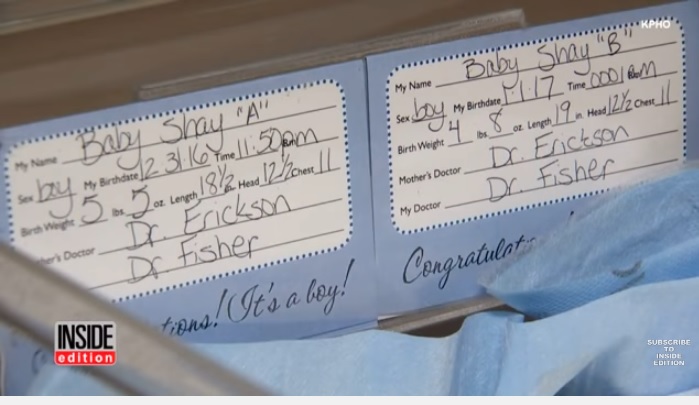 KPHO
My Name Baby Shay "A"
Sex boy My Birthdate 12 31 16 Time 11:50pm
Birth Weight 5 lbs 5 oz. Length 18½ in. Head 12½ Chest 11
her's Doctor Dr. Erickson
Dr. Fisher
tions! It's a boy!
My Name Baby Shay "B"
Sex boy My Birthdate 1·1·17 Time 0001 am
Birth Weight 4 lbs 8 oz. Length 19 in. Head 12½ Chest 11
Mother's Doctor Dr. Erickson
My Doctor Dr. Fisher
Congratulat
INSIDE
edition
SUBSCRIBE
TO
INSIDE
EDITION